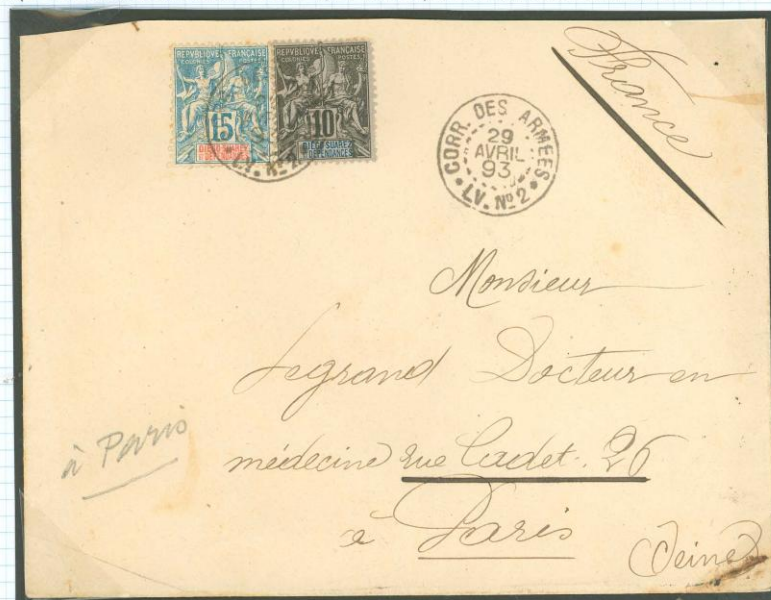 REPVBLIQVE FRANÇAISE
COLONIES POSTES
15
DIEGO SUAREZ
ET DEPENDANCES
REPVBLIQVE FRANÇAISE
COLONIES POSTES
10
DIEGO SUAREZ
ET DEPENDANCES
LV. Nº 2
CORR. DES ARMEES
29
AVRIL
93
LV. Nº 2
France
Monsieur
Legrand Docteur en
médecine rue Cadet. 26
à Paris
(Seine)
à Paris